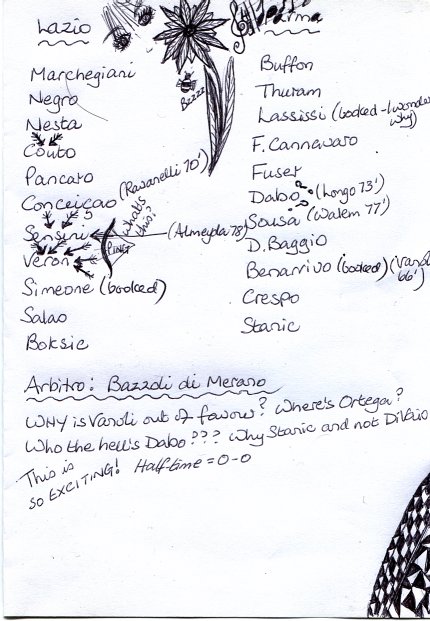 Lazio
Marchegiani
Negro
Nesta
Couto
Pancaro
Conceiçao (Ravanelli 70')
Sensini (Almeyda 78')
Veron
Simeone (booked)
Salao
Boksic
Bzzzz
What's this?
PING
Parma
Buffon
Thuram
Lassissi (booked - I wonder why)
F. Cannavaro
Fuser
Dabo ?? (Longo 73')
Sousa (Walem 77')
D. Baggio
Benarrivo (booked) (Vanoli 66')
Crespo
Stanic
Arbitro: Bazzoli di Merano
WHY is Vanoli out of favour? Where's Ortega?
Who the hell's Dabo??? Why Stanic and not DiVaio
This is SO EXCITING! Half-time = 0-0